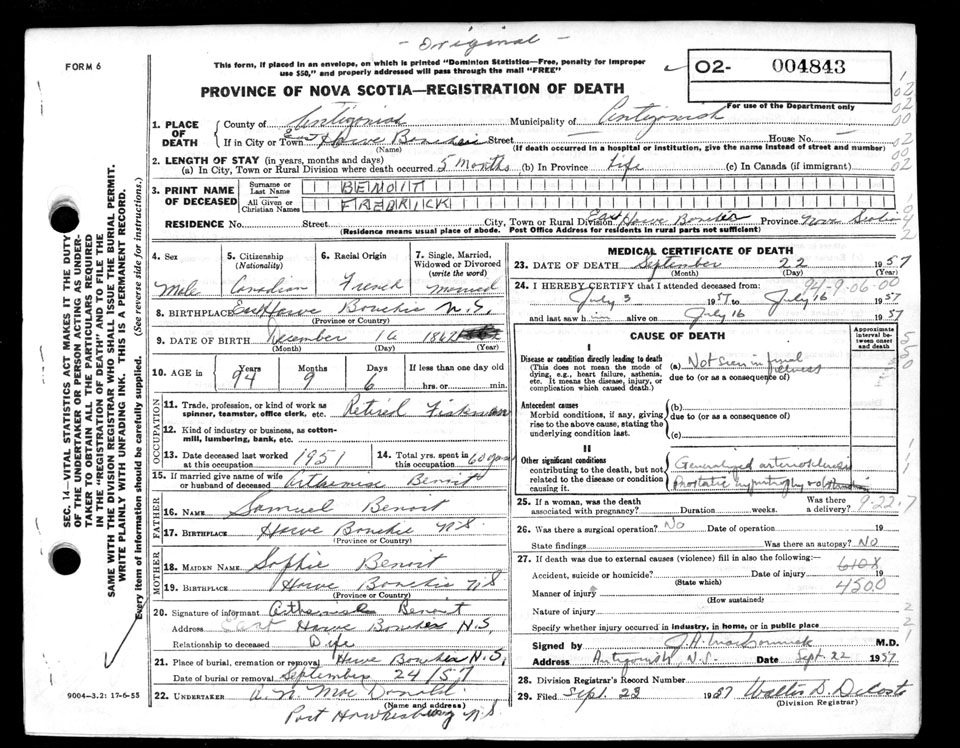 - Original -
FORM 6
This form, if placed in an envelope, on which is printed "Dominion Statistics—Free, penalty for improper
use $50," and properly addressed will pass through the mail "FREE"
O2- 004843
For use of the Department only
PROVINCE OF NOVA SCOTIA—REGISTRATION OF DEATH
1. PLACE OF DEATH County of Antigonish Municipality of Antigonish
If in City or Town East Havre Boucher Street House No. —
(Name) (If death occurred in a hospital or institution, give the name instead of street and number)
2. LENGTH OF STAY (in years, months and days)
(a) In City, Town or Rural Division where death occurred 5 months (b) In Province life (c) In Canada (if immigrant)
3. PRINT NAME OF DECEASED Surname or Last Name BENOIT
All Given or Christian Names FREDRICK
RESIDENCE No. Street City, Town or Rural Division East Havre Boucher Province Nova Scotia
(Residence means usual place of abode. Post Office Address for residents in rural parts not sufficient)
4. Sex Male
5. Citizenship (Nationality) Canadian
6. Racial Origin French
7. Single, Married, Widowed or Divorced (write the word) Married
8. BIRTHPLACE East Havre Bouchie N.S.
(Province or Country)
9. DATE OF BIRTH December 16 1862
(Month) (Day) (Year)
10. AGE in Years 94 Months 9 Days 6 If less than one day old
hrs. or min.
OCCUPATION
11. Trade, profession, or kind of work as spinner, teamster, office clerk, etc. Retired Fisherman
12. Kind of industry or business, as cotton-mill, lumbering, bank, etc.
13. Date deceased last worked at this occupation 1951
14. Total yrs. spent in this occupation 60 years
15. If married give name of wife or husband of deceased Arthemise Benoit
FATHER
16. NAME Samuel Benoit
17. BIRTHPLACE Havre Bouchie N.S.
(Province or Country)
MOTHER
18. MAIDEN NAME Sophie Benoit
19. BIRTHPLACE Havre Bouchie N.S
(Province or Country)
20. Signature of informant Arthemise Benoit
Address East Havre Boucher N.S,
Relationship to deceased Wife
21. Place of burial, cremation or removal Havre Boucher N.S,
Date of burial or removal September 24/57
22. UNDERTAKER A. N. MacDonald
(Name and Address)
Port Hawkesbury N.S.
9004-3.2: 17-6-53
SEC. 14—VITAL STATISTICS ACT MAKES IT THE DUTY
OF THE UNDERTAKER OR PERSON ACTING AS UNDER-
TAKER TO OBTAIN ALL THE PARTICULARS REQUIRED
IN THE "REGISTRATION OF DEATH" AND TO FILE THE
SAME WITH THE DIVISION REGISTRAR WHO SHALL ISSUE THE BURIAL PERMIT.
WRITE PLAINLY WITH UNFADING INK. THIS IS A PERMANENT RECORD.
Every item of information should be carefully supplied. (See reverse side for instructions.)
MEDICAL CERTIFICATE OF DEATH
23. DATE OF DEATH September 22 1957
(Month) (Day) (Year)
24. I HEREBY CERTIFY that I attended deceased from: 94-9-06-00
July 3 1957 to July 16 1957
and last saw him alive on July 16 1957
CAUSE OF DEATH
Approximate interval between onset and death
I
Disease or condition directly leading to death
(This does not mean the mode of dying, e.g., heart failure, asthenia, etc. It means the disease, injury, or complication which caused death.)
(a) Not seen in final illness
due to (or as a consequence of)
Antecedent causes
Morbid conditions, if any, giving rise to the above cause, stating the underlying condition last.
(b)
due to (or as a consequence of)
(c)
II
Other significant conditions
contributing to the death, but not related to the disease or condition causing it.
Generalized arteriosclerosis
Prostatic hypertrophy
25. If a woman, was the death associated with pregnancy? Duration weeks. Was there a delivery?
9-22.7
26. Was there a surgical operation? No Date of operation 19
State findings Was there an autopsy? No
27. If death was due to external causes (violence) fill in also the following:—
Accident, suicide or homicide? Date of injury 19
(State which)
610X
Manner of injury
4500
(How sustained)
Nature of injury
Specify whether injury occurred in industry, in home, or in public place
Signed by J.H. MacCormick M.D.
Address Antigonish, N.S. Date Sept 22 1957
28. Division Registrar's Record Number
29. Filed Sept. 23 1957 Walter D. DeCoste
(Division Registrar)